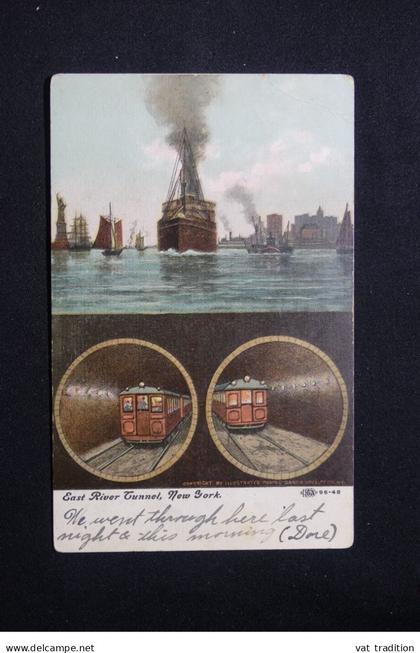 COPYRIGHT BY ILLUSTRATED POSTAL CARD
East River Tunnel, New York. 96-48
We went through here last
night & this morning (Dore)
vat tradition